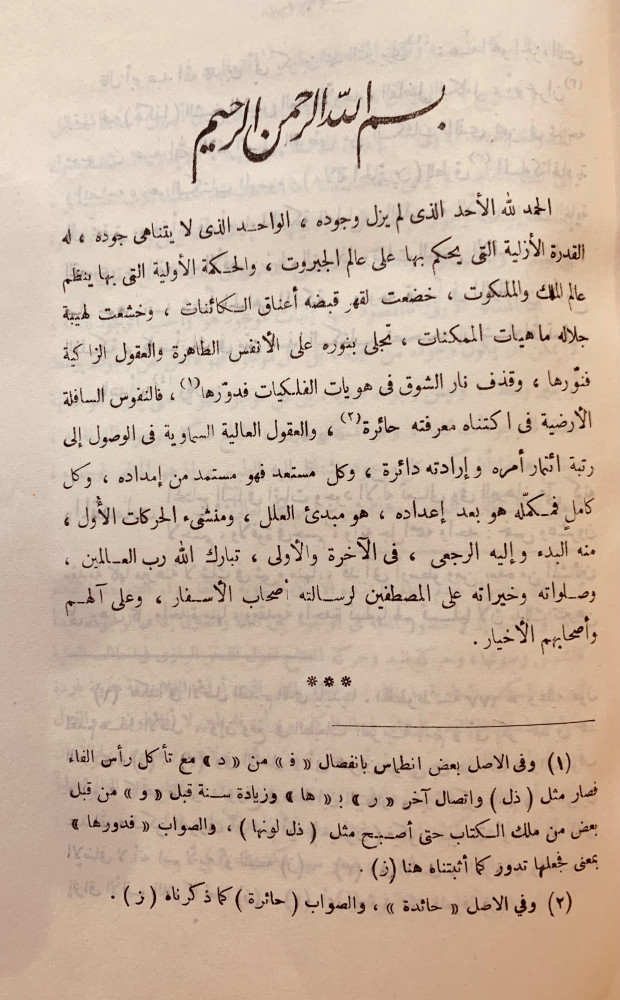 بسم الله الرحمن الرحيم
الحمد لله الأحد الذى لم يزل وجوده ، الواحد الذى لا يتناهى جوده ، له
القدرة الأزلية التى يحكم بها على عالم الجبروت ، والحكمة الأولية التى بها ينظم
عالم الملك والملكوت ، خضعت لقهر قبضه أعناق الكائنات ، وخشعت لهيبة
جلاله ماهيات الممكنات ، تجلى بنوره على الأنفس الطاهرة والعقول الزاكية
فنوّرها ، وقذف نار الشوق فى هويات الفلكيات فدوّرها(١) ، فالنفوس السافلة
الأرضية فى اكتناه معرفته حائرة(٢) ، والعقول العالية السماوية فى الوصول إلى
رتبة ائتمار أمره وإرادته دائرة ، وكل مستعد فهو مستمد من إمداده ، وكل
كامل فمكمّله هو بعد إعداده ، هو مبدئ العلل ، ومنشىء الحركات الأُول ،
منه البدء وإليه الرجعى ، فى الآخرة والأولى ، تبارك الله رب العالمين ،
وصلواته وخيراته على المصطفين لرسالته أصحاب الأسفار ، وعلى آلهم
وأصحابهم الأخيار .
***
(١) وفى الاصل بعض انطماس بانفصال « ف » من « د » مع تأكل رأس الفاء
فصار مثل ( ذل ) واتصال آخر « ر » بـ « ها » وزيادة سنة قبل « و » من قبل
بعض من ملك الكتاب حتى أصبح مثل ( ذل لونها ) ، والصواب « فدورها »
بمعنى فجعلها تدور كما أثبتناه هنا (ز) .
(٢) وفي الاصل « حائدة » ، والصواب ( حائرة ) كما ذكرناه ( ز ) .